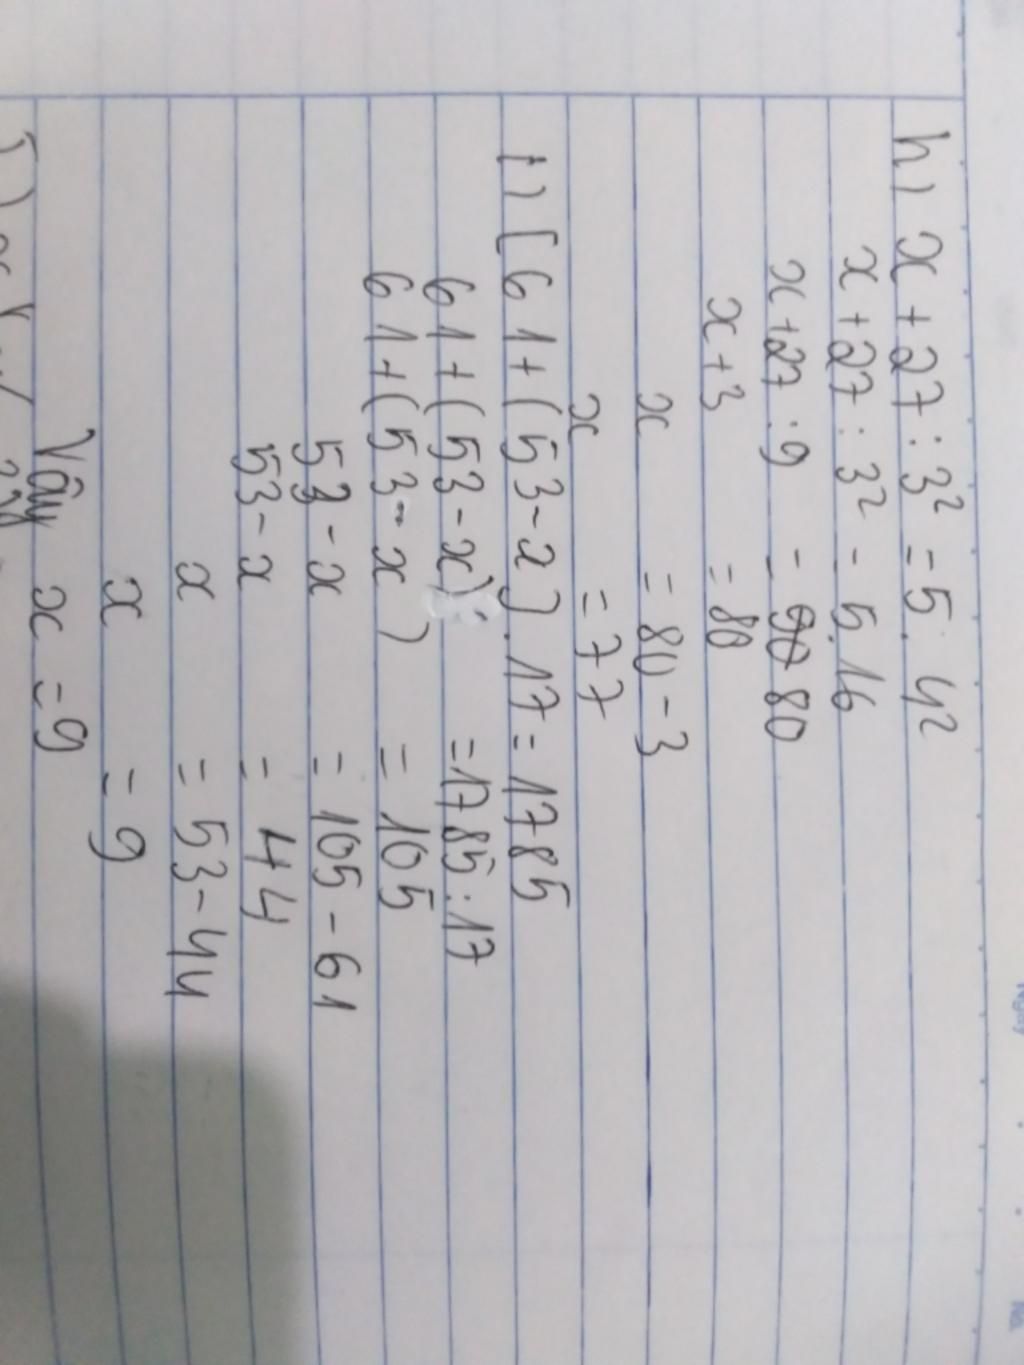 h) x + 27 : 3² = 5. 4²
x + 27 : 3² = 5.16
x + 27 : 9 = 80
x + 3 = 80
x = 80 - 3
x = 77
i) [61 + (53 - x)]. 17 = 1785
61 + (53 - x) = 1785 : 17
61 + (53 - x) = 105
53 - x = 105 - 61
53 - x = 44
x = 53 - 44
x = 9
Vây x = 9